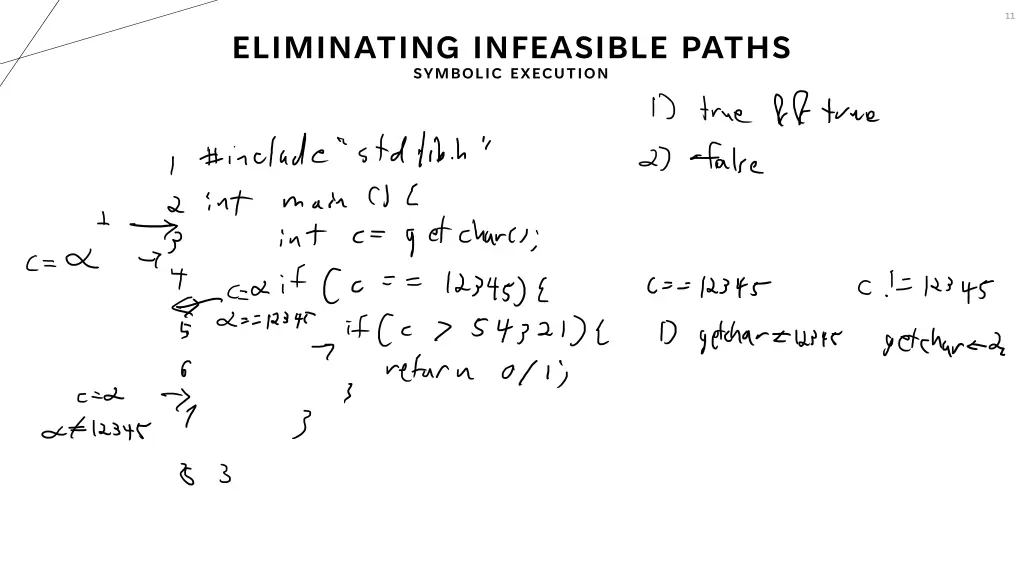 11
ELIMINATING INFEASIBLE PATHS
SYMBOLIC EXECUTION
1) true && true
2) false
1 #include "stdlib.h"
2 int main () {
1
3 int c = getchar();
c = α
4 if (c == 12345) {
c = α
α == 12345
5 if (c > 54321) {
6 return 0/1;
}
7 }
c = α
α ≠ 12345
8 }
c == 12345 c != 12345
1) getchar ← 12345 getchar ← 2